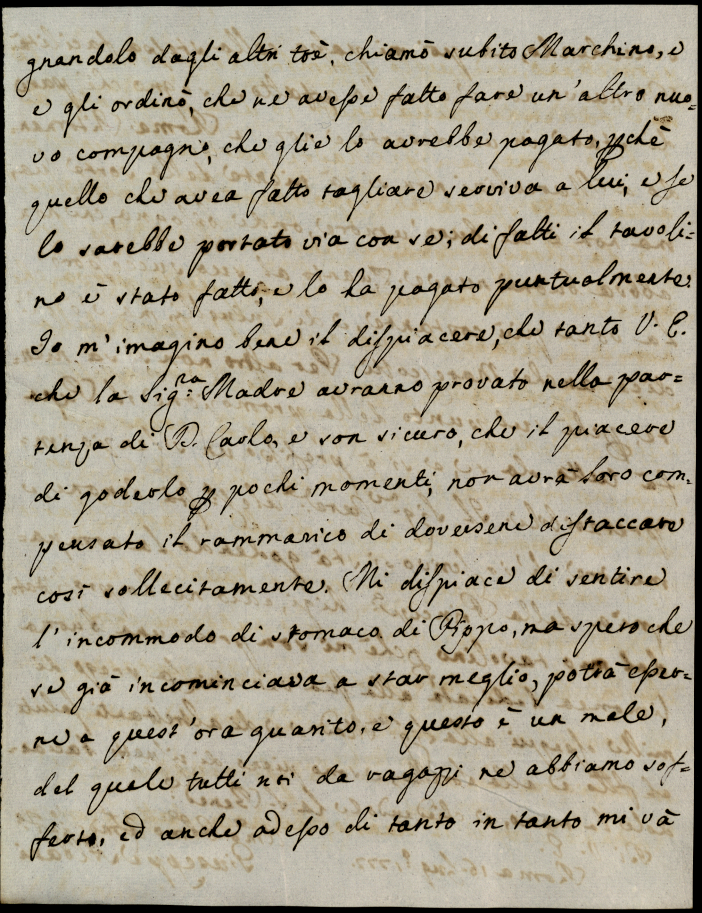 gnandolo dagli altri trè, chiamò subito Marchino, e
e gli ordinò, che ne avesse fatto fare un'altro nuo=
vo compagno, che glie lo avrebbe pagato, pchè
quello che avea fatto tagliare serviva a lui, e se
lo sarebbe portato via con se; di fatti il tavoli=
no è stato fatto, e lo ha pagato puntualmente.
Io m'imagino bene il dispiacere, che tanto V. E.
che la Sig:ra Madre avranno provato nella par=
tenza di D. Carlo, e son sicuro, che il piacere
di goderlo p pochi momenti, non avrà loro com=
pensato il rammarico di doversene distaccare
così sollecitamente. Mi dispiace di sentire
l'incommodo di stomaco di Pippo, ma spero che
se già incominciava a star meglio, potrà esser=
ne a quest'ora guarito, e questo è un male,
del quale tutti noi da ragazzi ne abbiamo sof=
ferto, ed anche adesso di tanto in tanto mi và